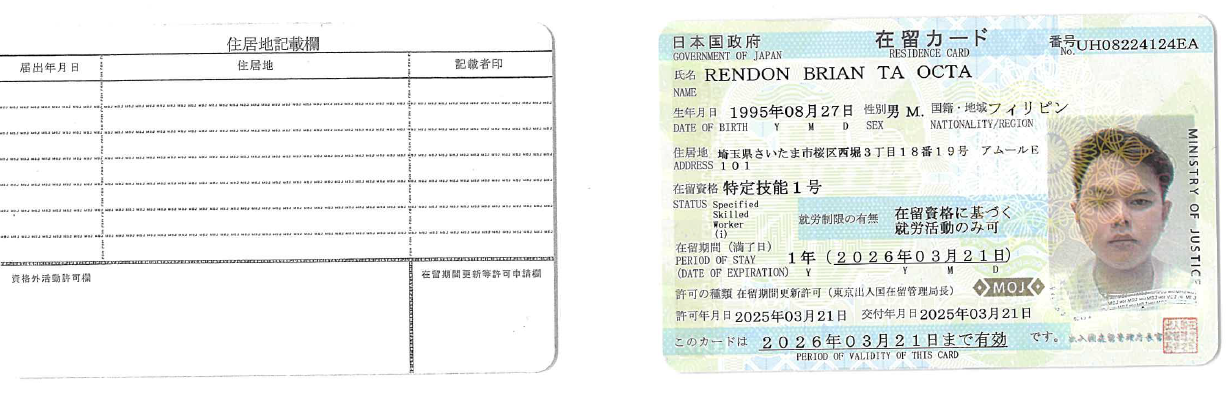 住居地記載欄
届出年月日 住居地 記載者印
資格外活動許可欄 在留期間更新等許可申請欄
日本国政府 在留カード 番号 UH08224124EA
GOVERNMENT OF JAPAN RESIDENCE CARD No.
氏名 RENDON BRIAN TA OCTA
NAME
生年月日 1995年08月27日 性別 男 M. 国籍・地域 フィリピン
DATE OF BIRTH Y M D SEX NATIONALITY/REGION
住居地 埼玉県さいたま市桜区西堀3丁目18番19号 アムールE
ADDRESS 101
在留資格 特定技能1号
STATUS Specified
Skilled
Worker
(i)
就労制限の有無 在留資格に基づく
就労活動のみ可
在留期間(満了日)
PERIOD OF STAY 1年(2026年03月21日)
(DATE OF EXPIRATION) Y Y M D
MOJ
許可の種類 在留期間更新許可(東京出入国在留管理局長)
許可年月日 2025年03月21日 交付年月日 2025年03月21日
このカードは 2026年03月21日まで有効 です。
PERIOD OF VALIDITY OF THIS CARD
出入国在留管理庁長官
MINISTRY OF JUSTICE